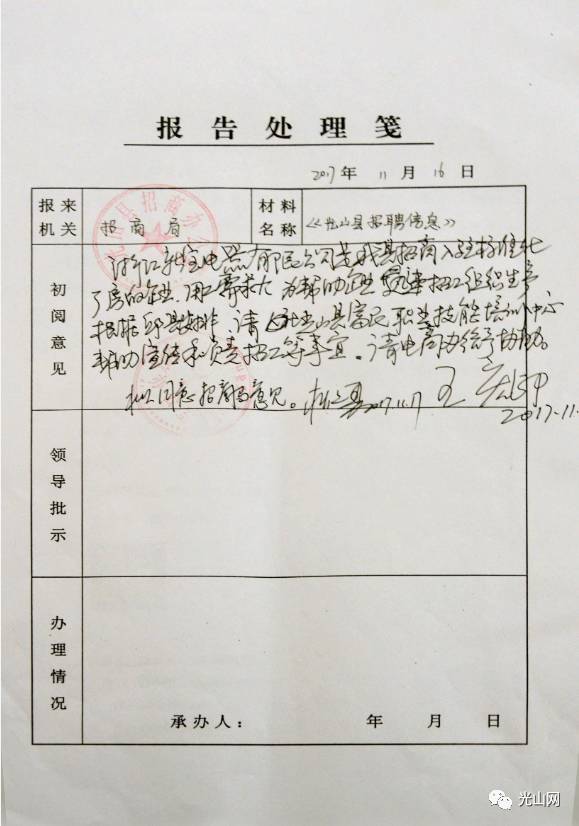 报告处理笺
2017年 11月 16日
报来机关 招商局 材料名称 《光山县招聘信息》
初阅意见
电器有限公司是我县招商入驻标准化
厂房的企业,用工需求大,为帮助企业 招工组织生产
根据 县安排,请 光山县富民职业技能培训中心
帮助宣传和负责招工等事宜。请电商办给予协助。
拟同意招商局意见。 2017.11.17
2017.11.
领导批示
办理情况
承办人: 年 月 日
光山网